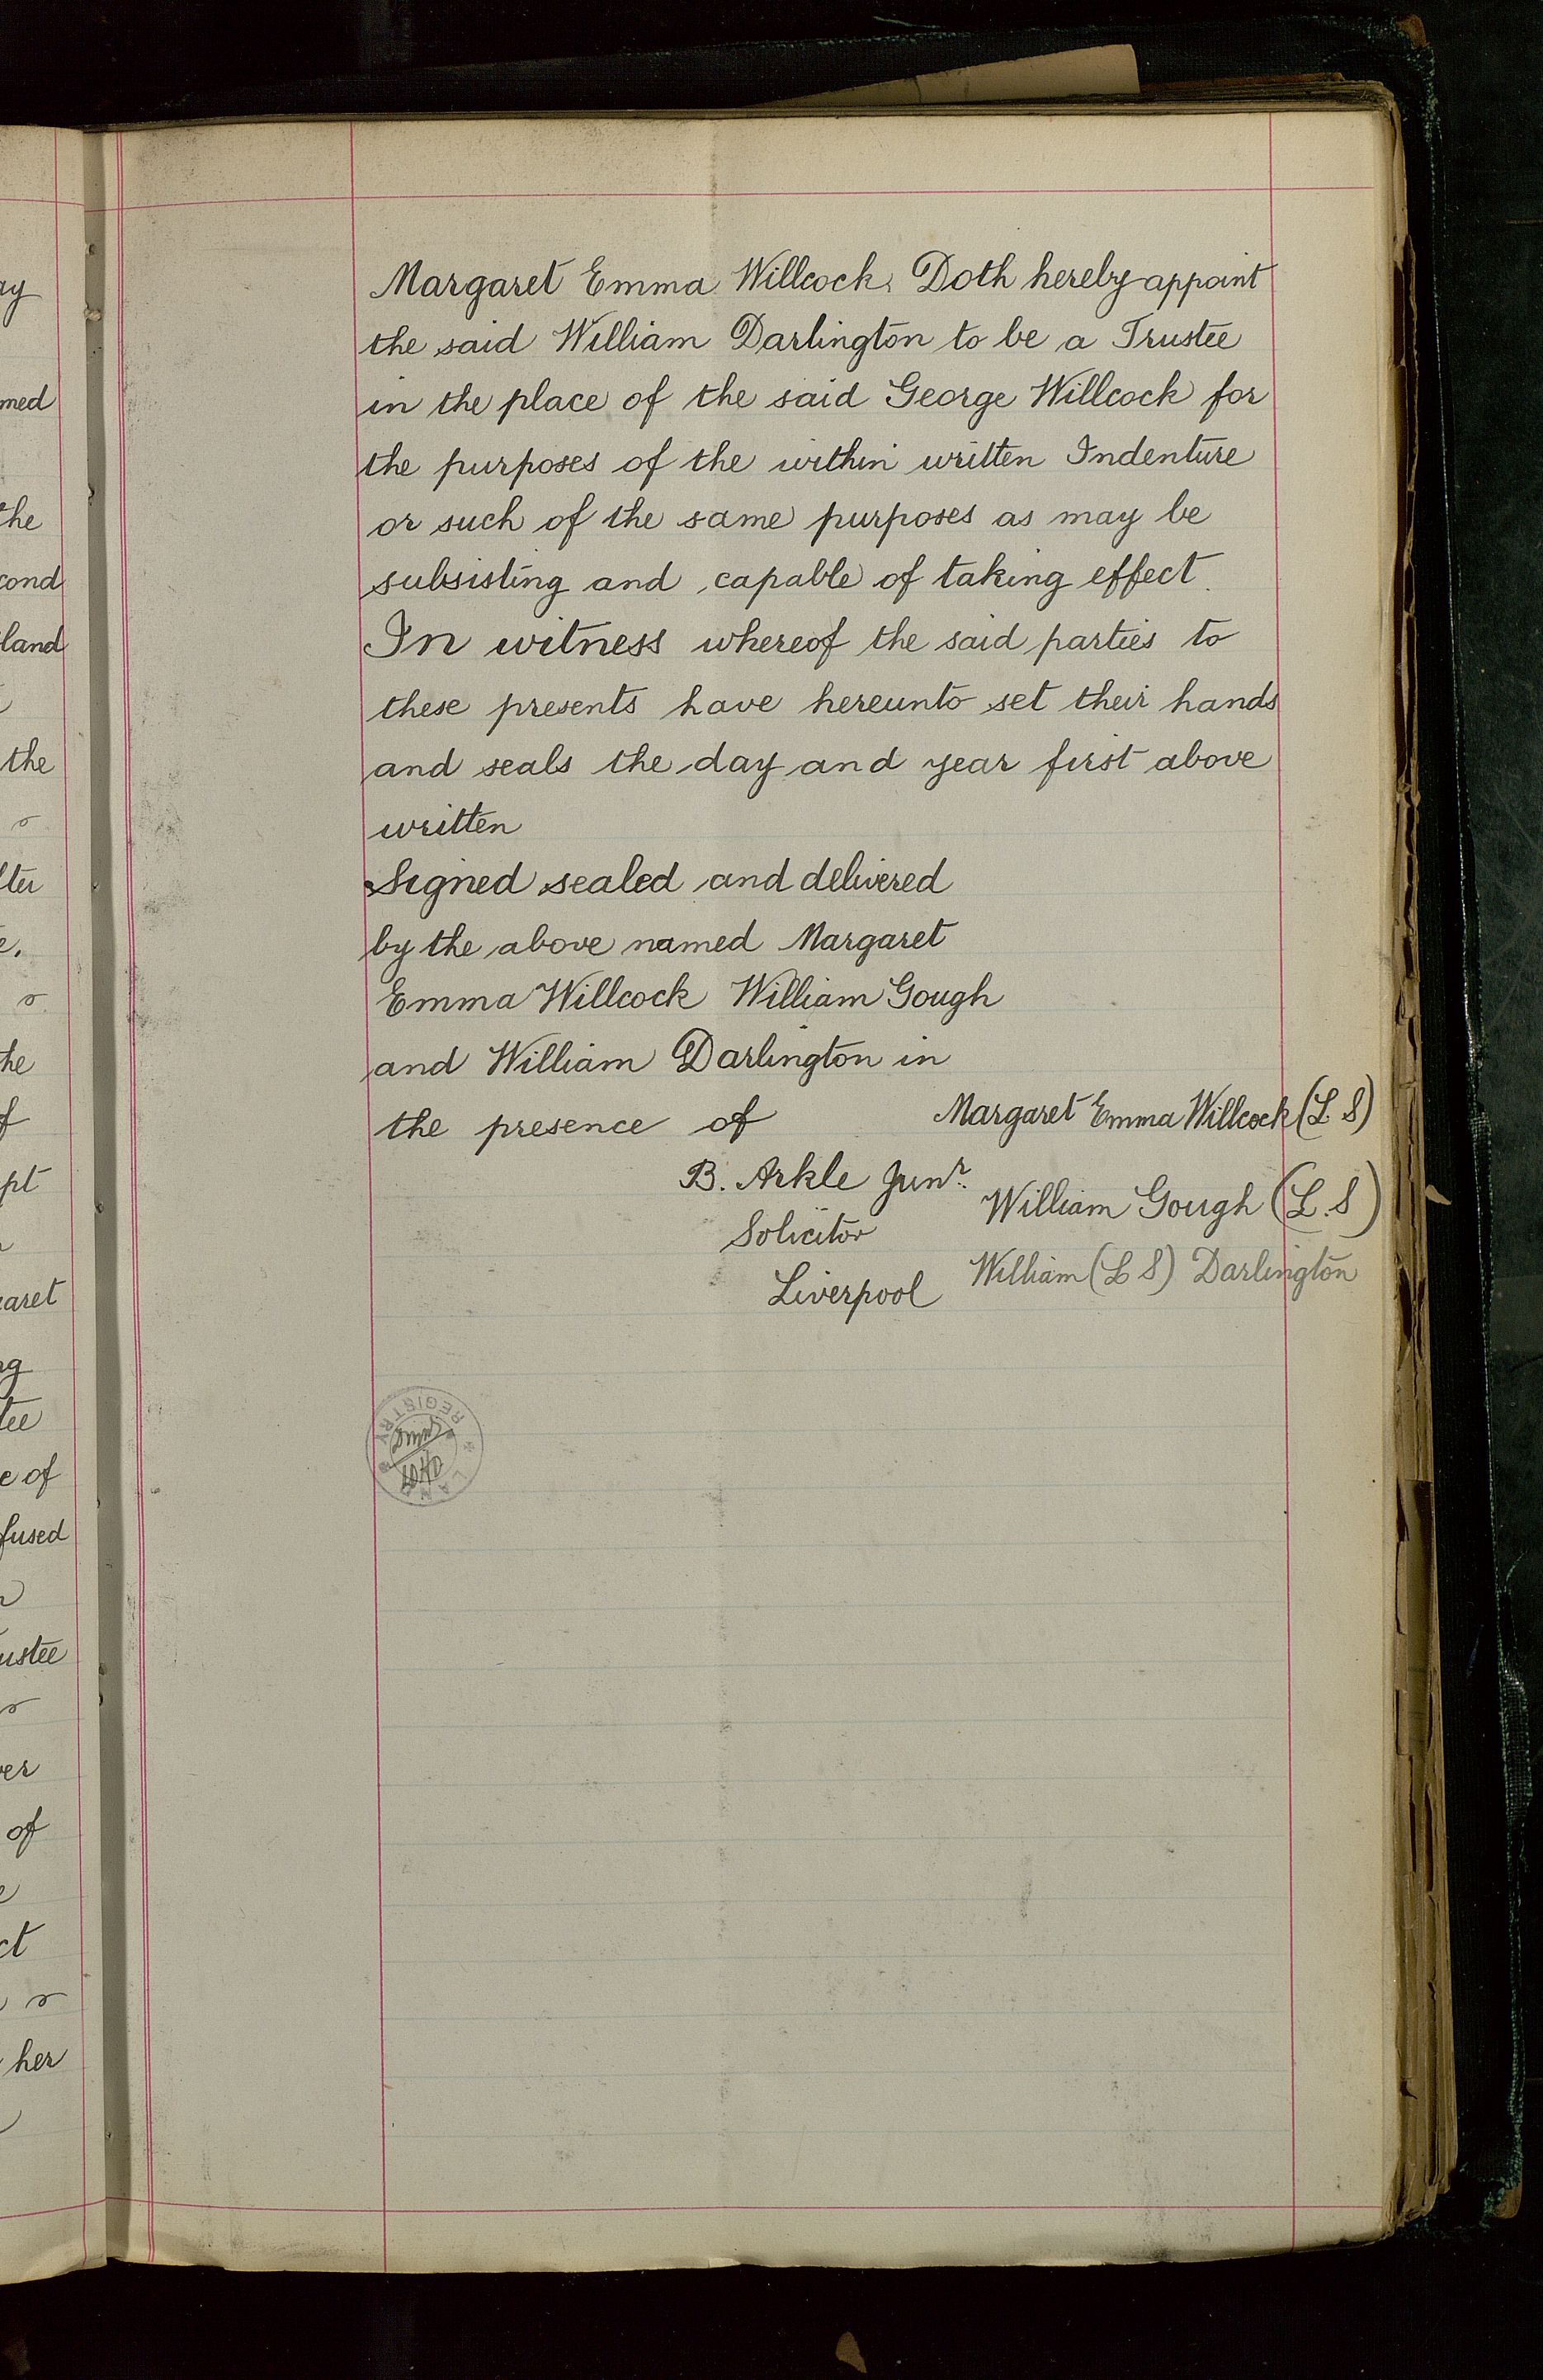 Margaret Emma Willcock Doth hereby appoint
the said William Darlington to be a Trustee
in the place of the said George Willcock for
the purposes of the within written Indenture
or such of the same purposes as may be
subsisting and capable of taking effect.
In witness whereof the said parties to
these presents have hereunto set their hands
and seals the day and year first above
written
Signed sealed and delivered
by the above named Margaret
Emma Willcock William Gough
and William Darlington in
the presence of
Margaret Emma Willcock (L. S)
B. Arkle Junr.
William Gough (L. S)
Solicitor
William (L S) Darlington
Liverpool
LAND REGISTRY
med
the
cond
land
the
of
pt
garet
tee
e of
fused
ustee
of
ct
her